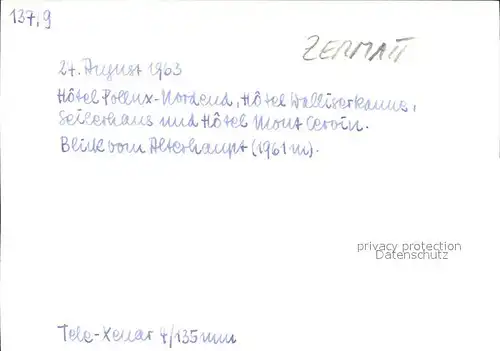 137,9
ZERMATT
27. August 1963
Hôtel Pollux-Nordend, Hôtel Walliserkanne,
Seilerhaus und Hôtel Mont Cervin.
Blick vom Alterhaupt (1961 m).
privacy protection
Datenschutz
Tele-Xenar 4/135 mm